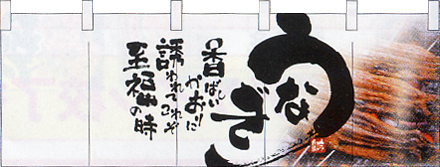 うなぎ
香ばしい
かおりに
誘われてこれぞ
至福の時